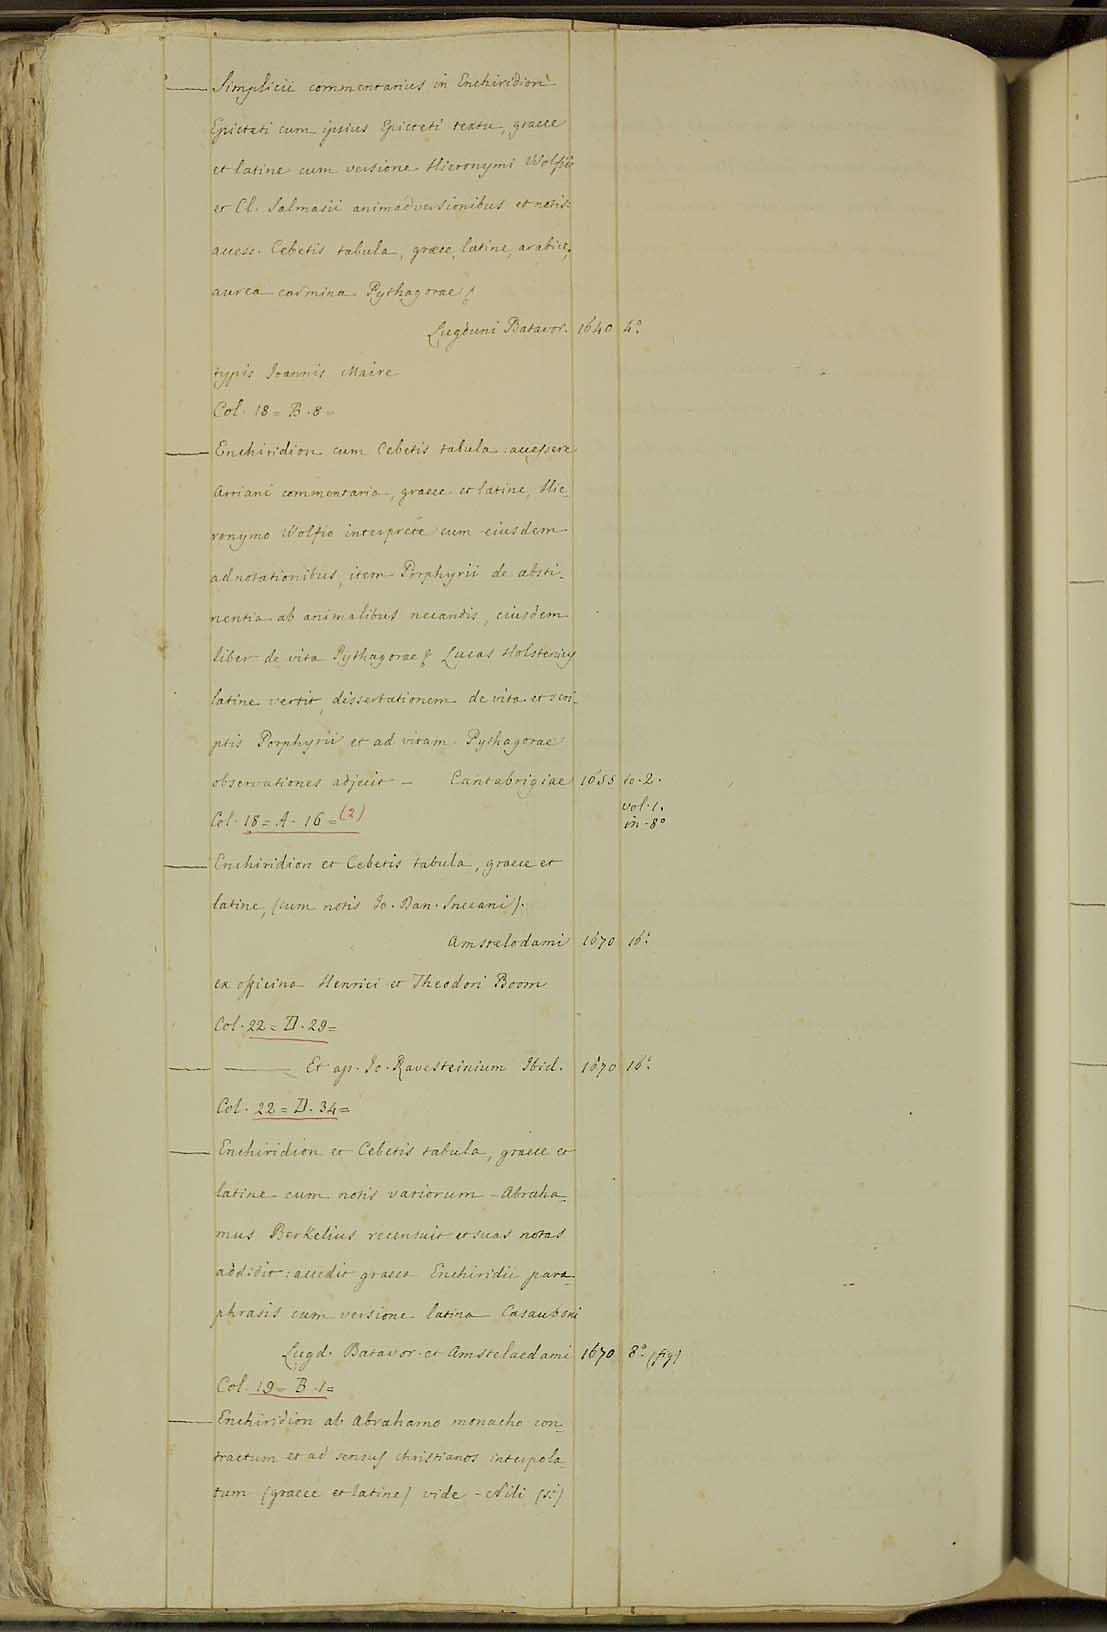 — Simplicii commentarius in Enchiridion
Epicteti cum ipsius Epicteti textu, graece
et latine cum versione Hieronymi Wolfii
et Cl. Salmasii animadversionibus et notis:
access. Cebetis tabula, graece, latine, arabice,
aurea carmina Pythagorae
Lugduni Batavor. 1640 4.º
typis Joannis Maire
Col. 18 = B. 8 =
— Enchiridion cum Cebetis tabula: accessere
Arriani commentaria, graece et latine, Hie_
ronymo Wolfio interprete cum eiusdem
adnotationibus, item Porphyrii de absti_
nentia ab animalibus necandis, eiusdem
liber de vita Pythagorae Lucas Holstenius
latine vertit, dissertationem de vita et scri_
ptis Porphyrii et ad vitam Pythagorae
observationes adjecit — Cantabrigiae 1655 to. 2.
vol. 1.
in-8º
Col. 18 = A. 16 = (2)
— Enchiridion et Cebetis tabula, graece et
latine, (cum notis Jo. Dan. Snecani).
Amstelodami 1670 16.º
ex officina Henrici et Theodori Boom
Col. 22 = D. 29 =
— — Et ap. Jo. Ravesteinium Ibid. 1670 16.º
Col. 22 = D. 34 =
— Enchiridion et Cebetis tabula, graece et
latine cum notis variorum — Abraha_
mus Berkelius recensuit et suas notas
addidit: accedit graeca Enchiridii para_
phrasis cum versione latina Casauboni
Lugd. Batavor. et Amstelaedami 1670 8.º (fig)
Col. 19 = B. 1 =
— Enchiridion ab Abrahamo monacho con_
tractum et ad sensus christianos interpola_
tum (graece et latine) vide — Nili (S.i)